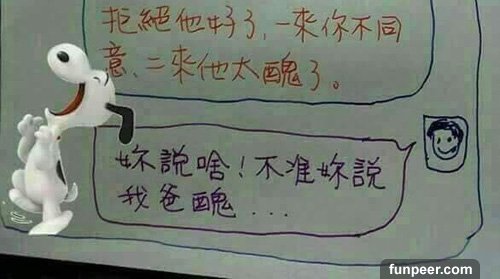 拒絕他好了,一來你不同
意、二來他太醜了。
妳說啥!不准妳說
我爸醜...
funpeer.com